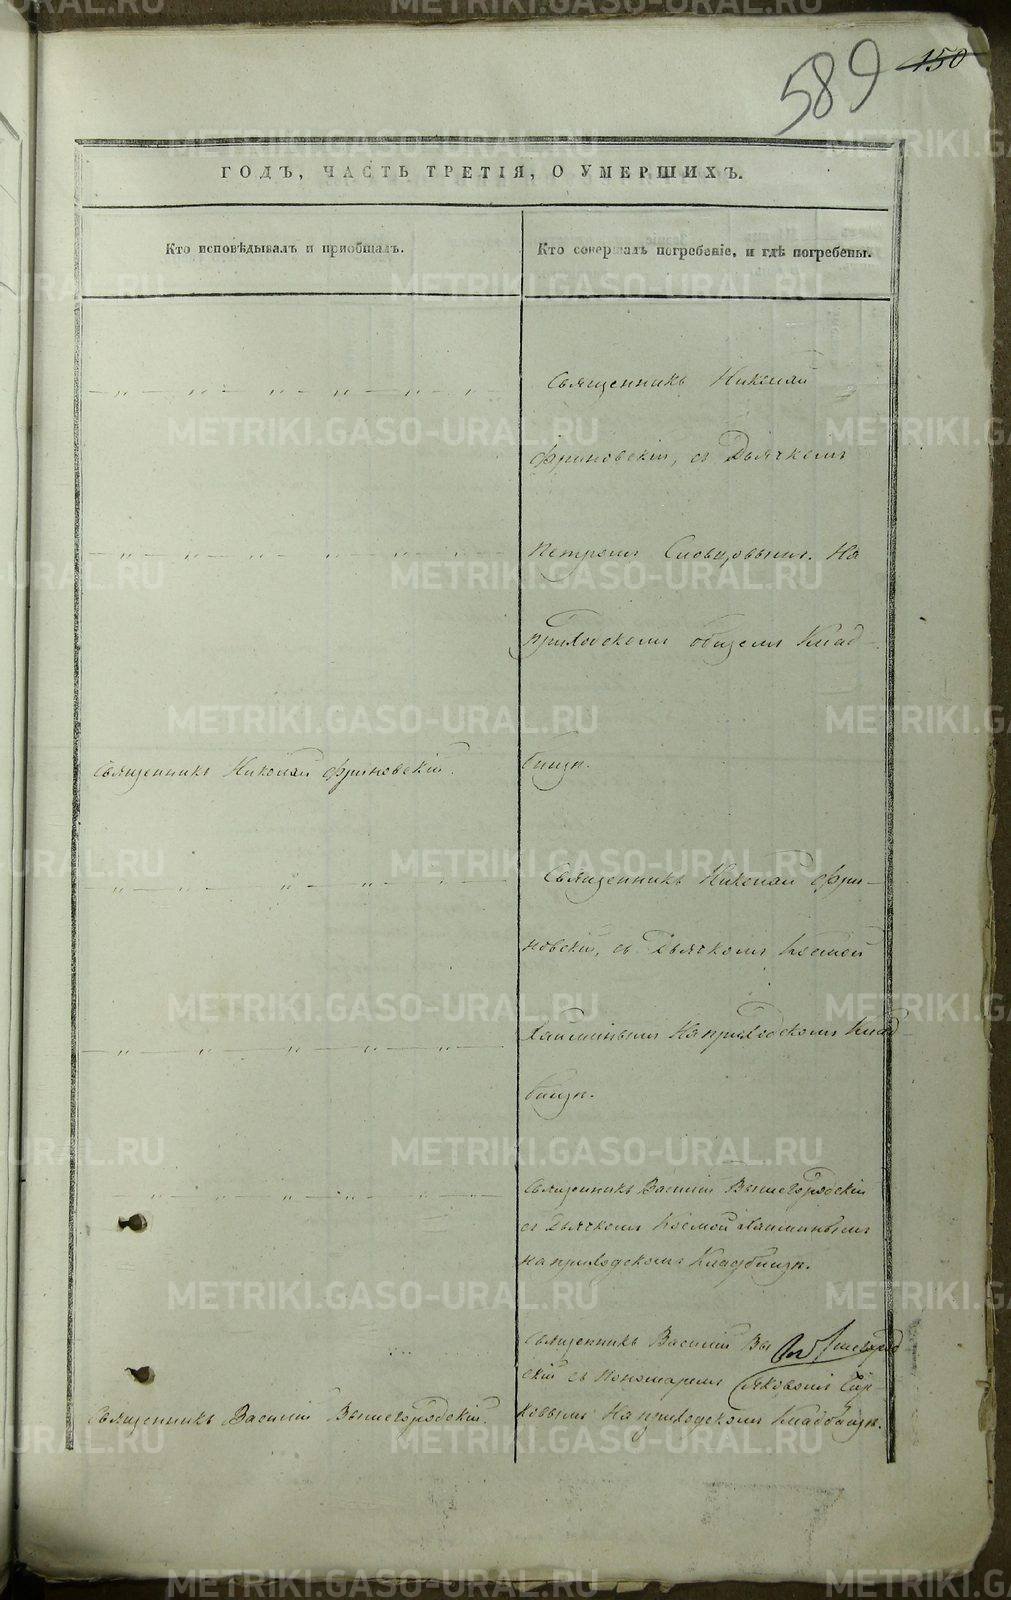 589 150
ГОДЪ, ЧАСТЬ ТРЕТІЯ, О УМЕРШИХЪ.
Кто исповѣдывалъ и пріобщалъ.
Кто совершалъ погребеніе, и гдѣ погребены.
Священникъ Николай
Фриновскій, съ Дьячкомъ
Петромъ Словцовымъ. На
приходскомъ общемъ Клад-
бищѣ.
Священникъ Николай Фриновскій.
Священникъ Николай Фри-
новскій, съ Дьячкомъ Космой
На приходскомъ Клад-
бищѣ.
Священникъ Василій Вышегородскій
съ Дьячкомъ Космой
на приходскомъ Кладбищѣ.
Священникъ Василій Вышегород
скій съ Пономаремъ Яковомъ
На приходскомъ Кладбищѣ.
Священникъ Василій Вышегородскій.
METRIKI.GASO-URAL.RU